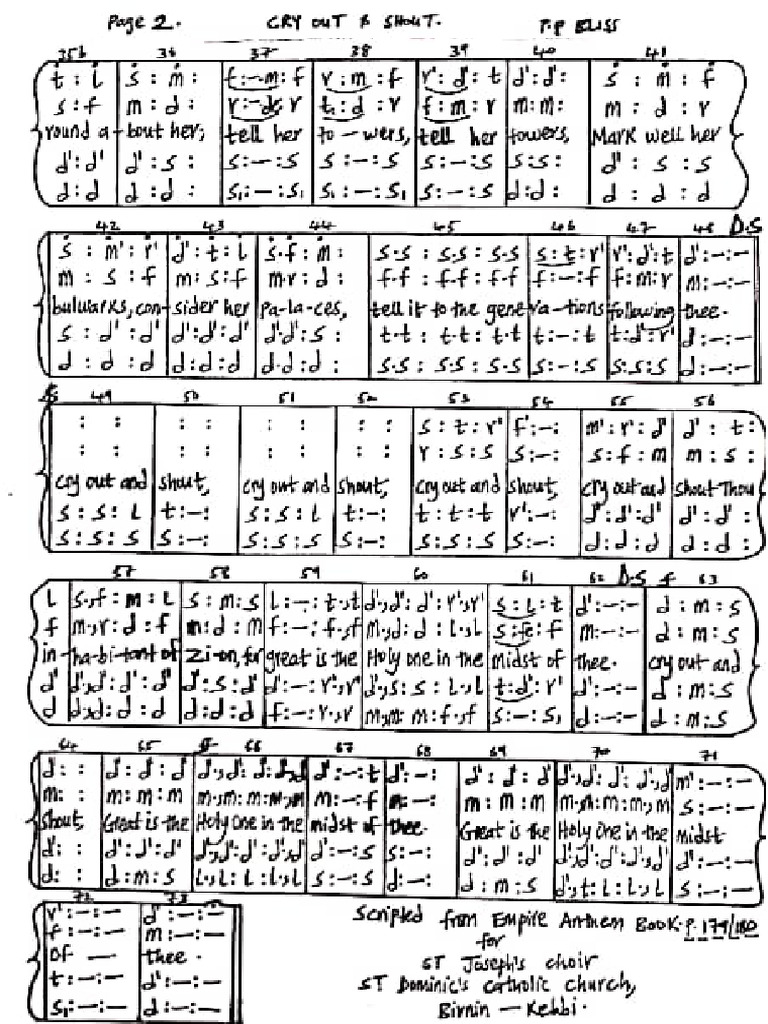 Page 2. CRY OUT & SHOUT. P.P BLISS
35b 36 37 38 39 40 41
t : l s : m : f : - m : f r : m : f r' : d' : t d' : d' : s : m : f
s : f m : d : r : - d : r t : d : r f : m : r m : m : m : d : r
round a - bout her; tell her to - wers, tell her towers, Mark well her
d' : d' d' : s : s : - : s s : - : s s : - : s s : s : d' : s : s
d : d d : d : s₁ : - : s₁ s : - : s₁ s : - : s d : d : d : d : d
42 43 44 45 46 47 48 D.S
s : m' : r' d' : t : l s . f : m : s . s : s . s : s . s s : t : r' r' : d' : t d' : - : -
m : s : f m : s : f m . r : d : f . f : f . f : f . f f : - : f f : m : r m : - : -
bulwarks, con - sider her pa - la - ces, tell it to the gene - ra - tions following thee.
s : d' : d' d' : d' : d' d' . d' : s : t . t : t . t : t . t t : - : t t : d' : r' d : - : -
d : d : d d : d : d d . d : d : s . s : s . s : s . s s : - : s s : s : s d : - : -
49 50 51 52 53 54 55 56
: : : : : : : : s : t : r' f' : - : m' : r' : d' d' : t :
: : : : : : : : r : s : s s : - : s : f : m m : s :
cry out and shout, cry out and shout, cry out and shout, cry out and shout Thou
s : s : l t : - : s : s : l t : - : t : t : t r' : - : d' : d' : d' d' : d' :
s : s : s s : - : s : s : s s : - : s : s : s s : - : d : d : d d : d :
57 58 59 60 61 62 D.S f 63
l s . , f : m : l s : m : s l : - : t . , t d' . , d' : d' : r' . , r' s : l : t d' : - : - d : m : s
f m . , r : d : f m : d : m f : - : f . , f m . , d : d : l . , l s : fe : f m : - : - d : m : s
in - ha - bi - tant of Zi - on, for great is the Holy one in the midst of thee. cry out and
d' d' . , d' : d' : d' d' : s : d' d' : - : r' . , r' d' . , s : s : l . , l t : d' : r' d' : - : - d : m : s
d d . , d : d : d d : d : d f : - : r . , r m . , m : m : f . , f s : - : s₁ d : - : - d : m : s
64 65 f 66 67 68 69 70 71
d : : d : d : d d . , d : d : d . , d d' : - : t d' : - : d' : d' : d' d' . , d' : d' : d' . , d' m' : - : -
m : : m : m : m m . , m : m : m . , m m : - : f m : - : m : m : m m . , m : m : m . , m s : - : -
shout, Great is the Holy One in the midst of thee. Great is the Holy One in the midst
d' : : d' : d' : d' d' . , d' : d' : d' . , d' d' : - : s s : - : d' : d' : d' d' . , d' : d' : d' . , d' d' : - : -
d : : d : m : s l . , l : l : l . , l s : - : s d : - : d : m : s d' . , t : l : l . , l s : - : -
72 73
r' : - : - d' : - : -
f : - : - m : - : -
Of — thee.
t : - : - d' : - : -
s₁ : - : - d : - : -
Scripted from Empire Anthem Book. P. 179/180
for
ST Joseph's choir
ST Dominic's Catholic church,
Birnin - Kebbi.